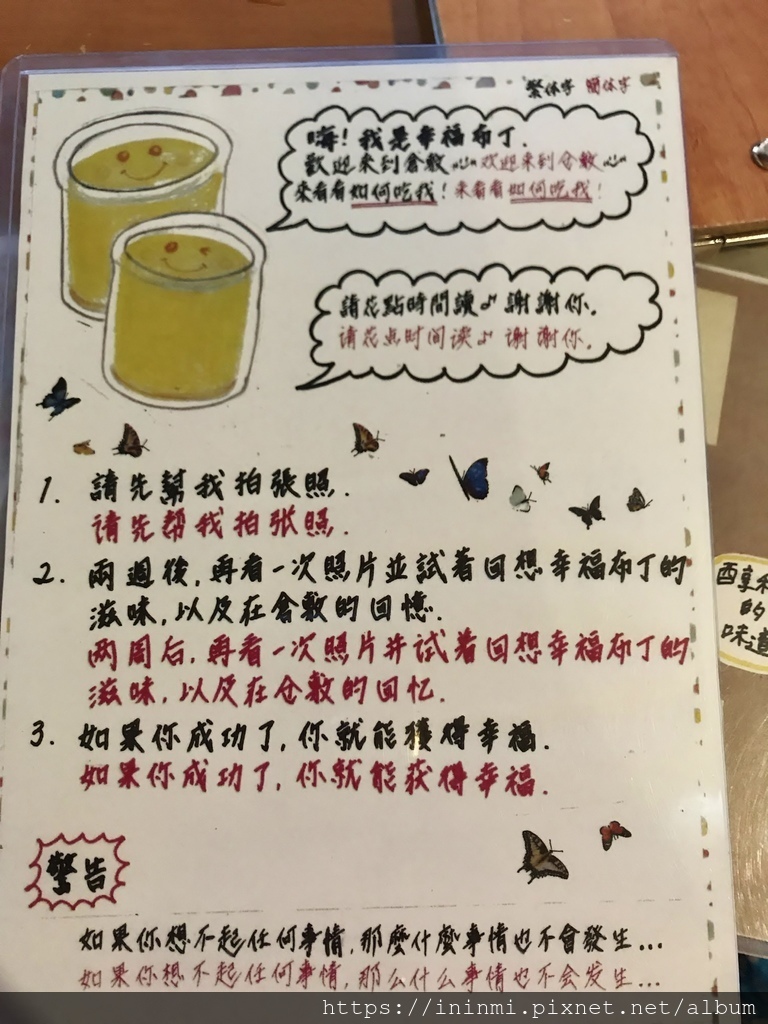 繁体字 簡体字
嗨！我是幸福布丁.
歡迎來到倉敷 欢迎来到仓敷
來看看如何吃我！来看看如何吃我！
請花點時間讀♪謝謝你.
请花点时间读♪谢谢你.
1. 請先幫我拍張照.
请先帮我拍张照.
2. 兩週後,再看一次照片並試著回想幸福布丁的
滋味,以及在倉敷的回憶.
两周后,再看一次照片并试着回想幸福布丁的
滋味,以及在仓敷的回忆.
3. 如果你成功了,你就能獲得幸福.
如果你成功了,你就能获得幸福.
警告
如果你想不起任何事情,那麼什麼事情也不會發生...
如果你想不起任何事情,那么什么事情也不会发生...
的
味道
https://ininmi.pixnet.net/album